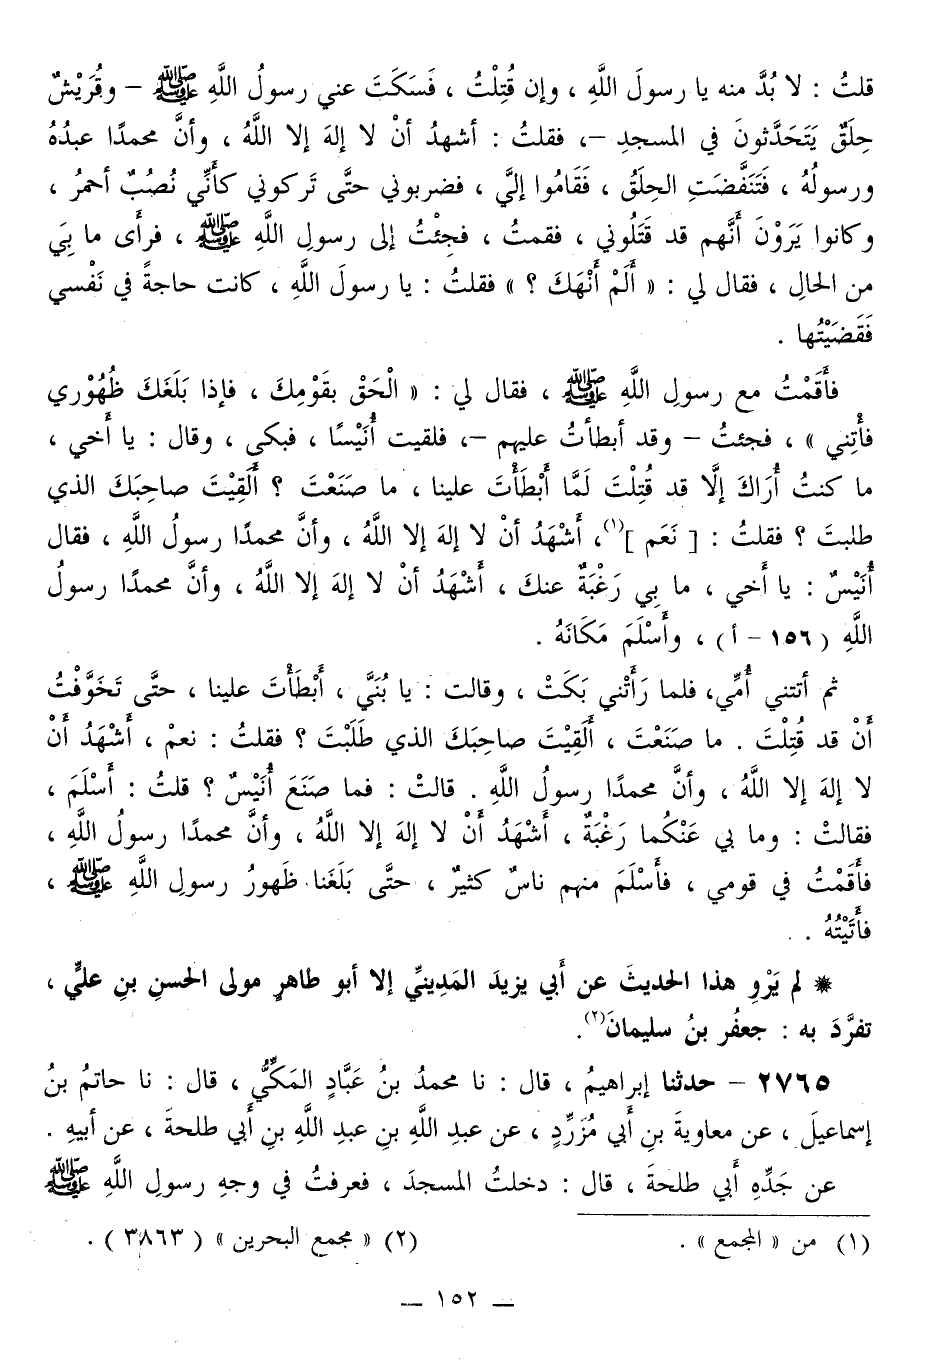 قلتُ : لا بُدَّ منه يا رسولَ اللَّهِ ، وإن قُتِلْتُ ، فَسَكَتَ عني رسولُ اللَّهِ ﷺ – وقُرَيْشٌ
حِلَقٌ يَتَحَدَّثونَ في المسجدِ –، فقلتُ : أشهدُ أنْ لا إلهَ إلا اللَّهُ ، وأنَّ محمدًا عبدُهُ
ورسولُهُ ، فَتَنَفَّضَتِ الحِلَقُ ، فَقَامُوا إليَّ ، فضربوني حتَّى تَركوني كأَنِّي نُصُبٌ أحمرُ ،
وكانوا يَرَوْنَ أَنَّهم قد قَتَلُوني ، فقمتُ ، فجِئْتُ إلى رسولِ اللَّهِ ﷺ ، فرأَى ما بِي
من الحالِ ، فقال لي : « أَلَمْ أَنْهَكَ ؟ » فقلتُ : يا رسولَ اللَّهِ ، كانت حاجةً في نَفْسي
فَقَضَيْتُها .
فأَقَمْتُ مع رسولِ اللَّهِ ﷺ ، فقال لي : « الْحَقْ بقَوْمِكَ ، فإذا بَلَغَكَ ظُهُوْري
فأْتِني » ، فجئتُ – وقد أبطأتُ عليهم –، فلقيت أُنَيْسًا ، فبكى ، وقال : يا أخي ،
ما كنتُ أُرَاكَ إلَّا قد قُتِلْتَ لَمَّا أَبْطَأْتَ علينا ، ما صَنَعْتَ ؟ أَلَقِيْتَ صاحِبَكَ الذي
طلبتَ ؟ فقلتُ : [ نَعَم ](١)، أَشْهَدُ أنْ لا إلهَ إلا اللَّهُ ، وأنَّ محمدًا رسولُ اللَّهِ ، فقال
أُنَيْسٌ : يا أَخي ، ما بِي رَغْبَةٌ عنكَ ، أَشْهَدُ أنْ لا إلهَ إلا اللَّهُ ، وأنَّ محمدًا رسولُ
اللَّهِ ( ١٥٦ – أ ) ، وأَسْلَمَ مَكَانَهُ .
ثم أتتني أُمِّي، فلما رَأَتْني بَكَتْ ، وقالت : يا بُنَيَّ ، أَبْطَأْتَ علينا ، حتَّى تَخَوَّفْتُ
أَنْ قد قُتِلْتَ . ما صَنَعْتَ ، أَلَقِيْتَ صاحِبَكَ الذي طَلَبْتَ ؟ فقلتُ : نعمْ ، أَشْهَدُ أَنْ
لا إلهَ إلا اللَّهُ ، وأنَّ محمدًا رسولُ اللَّهِ . قالتْ : فما صَنَعَ أُنَيْسٌ ؟ قلتُ : أَسْلَمَ ،
فقالتْ : وما بي عَنْكُما رَغْبَةٌ ، أَشْهَدُ أَنْ لا إلهَ إلا اللَّهُ ، وأنَّ محمدًا رسولُ اللَّهِ ،
فأَقَمْتُ في قومي ، فأَسْلَمَ منهم ناسٌ كثيرٌ ، حتَّى بَلَغَنا ظَهورُ رسولِ اللَّهِ ﷺ ،
فأَتَيْتُهُ . .
* لم يَرْوِ هذا الحديثَ عن أَبي يزيدَ المَدِينيِّ إلا أبو طاهرٍ مولى الحسنِ بنِ عليٍّ ،
تفرَّدَ به : جعفُر بنُ سليمانَ(٢).
٢٧٦٥ – حدثنا إبراهيمُ ، قال : نا محمدُ بنُ عَبَّادٍ المَكِّيُّ ، قال : نا حاتمُ بنُ
إسماعيلَ ، عن معاويةَ بنِ أَبي مُزَرِّدٍ ، عن عبدِ اللَّهِ بنِ عبدِ اللَّهِ بنِ أَبي طلحةَ ، عن أبيهِ .
عن جَدِّهِ أَبي طلحةَ ، قال : دخلتُ المسجدَ ، فعرفتُ في وجهِ رسولِ اللَّهِ ﷺ
(١) من « المجمع » .
(٢) « مجمع البحرين » ( ٣٨٦٣ ) .
— ١٥٢ —